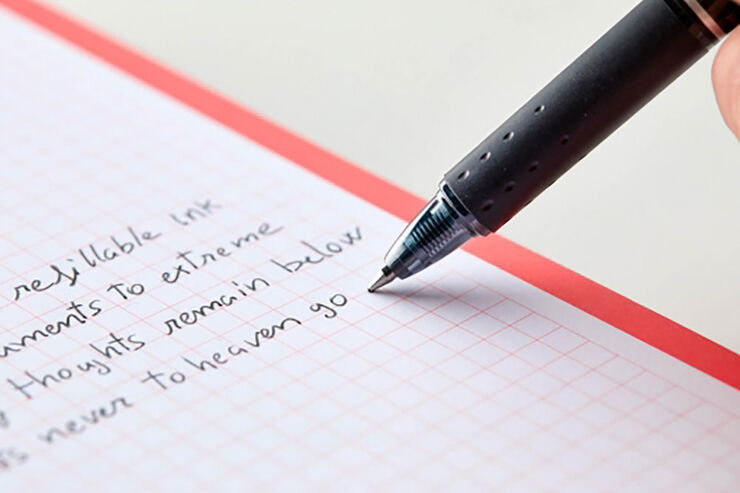 refillable ink
to extreme
thoughts remain below
never to heaven go